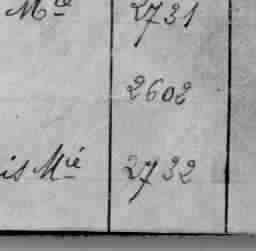 Mie 2731
2602
is Mié 2732